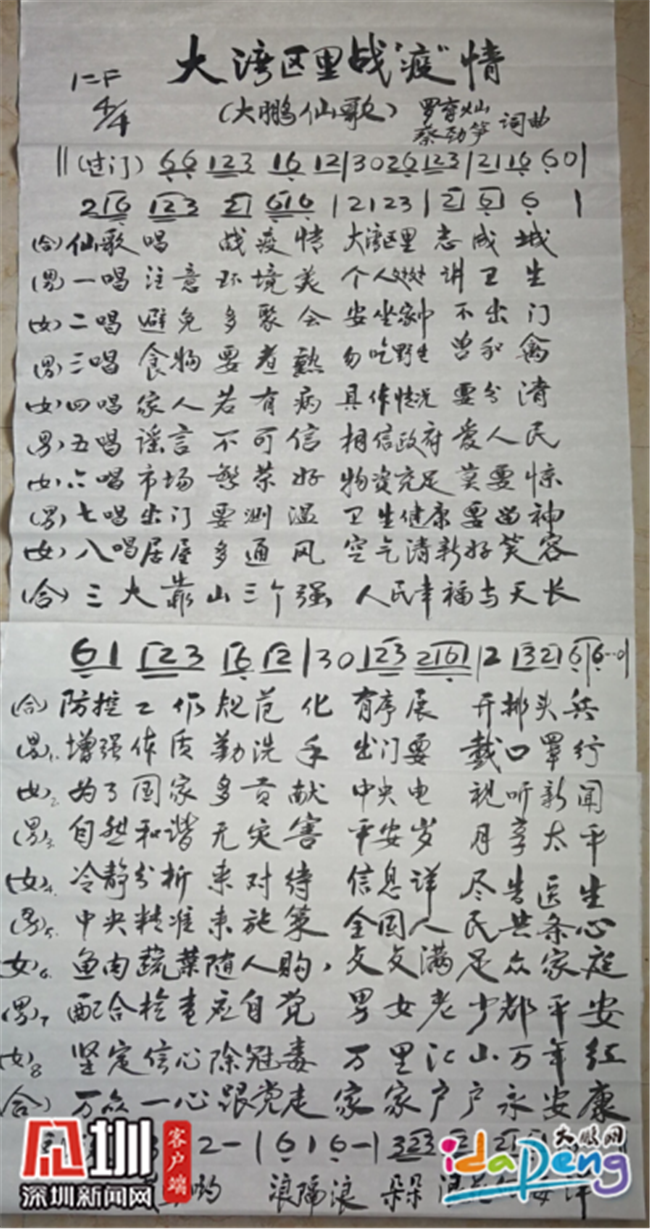 大湾区里战“疫”情
1=F
4/4
(大鹏仙歌) 罗育灿
蔡劲笋 词曲
‖(过门) 66 123 16 12|30 26 123|21 16 60|
216 123 21 616|2123|21 61 6 |
(合)仙歌唱 战疫情 大湾区里 志成城
(男)一唱 注意 环境美 个人处处 讲卫生
(女)二唱 避免 多聚会 安坐家中 不出门
(男)三唱 食物 要煮熟 勿吃野生 兽和禽
(女)四唱 家人 若有病 具体情况 要分清
(男)五唱 谣言 不可信 相信政府 爱人民
(女)六唱 市场 繁荣好 物资充足 莫要惊
(男)七唱 出门 要测温 卫生健康 要留神
(女)八唱 居屋 多通风 空气清新 好笑容
(合)三大靠山三个强 人民幸福与天长
61 123 16 12|30 123 2161|2 1321 6 6--0|
(合)防控工作规范化 有序展 开排头兵
(男)1.增强体质勤洗手 出门要 戴口罩行
(女)2.为了国家多贡献 中央电 视听新闻
(男)3.自然和谐无灾害 平安岁 月享太平
(女)4.冷静分析来对待 信息详 尽告医生
(男)5.中央精准来施策 全国人 民共条心
(女)6.鱼肉蔬菜随人购,足足满足众家庭
(男)7 配合检查应自觉 男女老少都平安
(女)8 坚定信心除冠毒 万里江山万年红
(合)万众一心跟党走 家家户户永安康
2-|61 6-|323
哟 浪隔浪 朵朵
深圳
客户端
深圳新闻网
大鹏网
idapeng